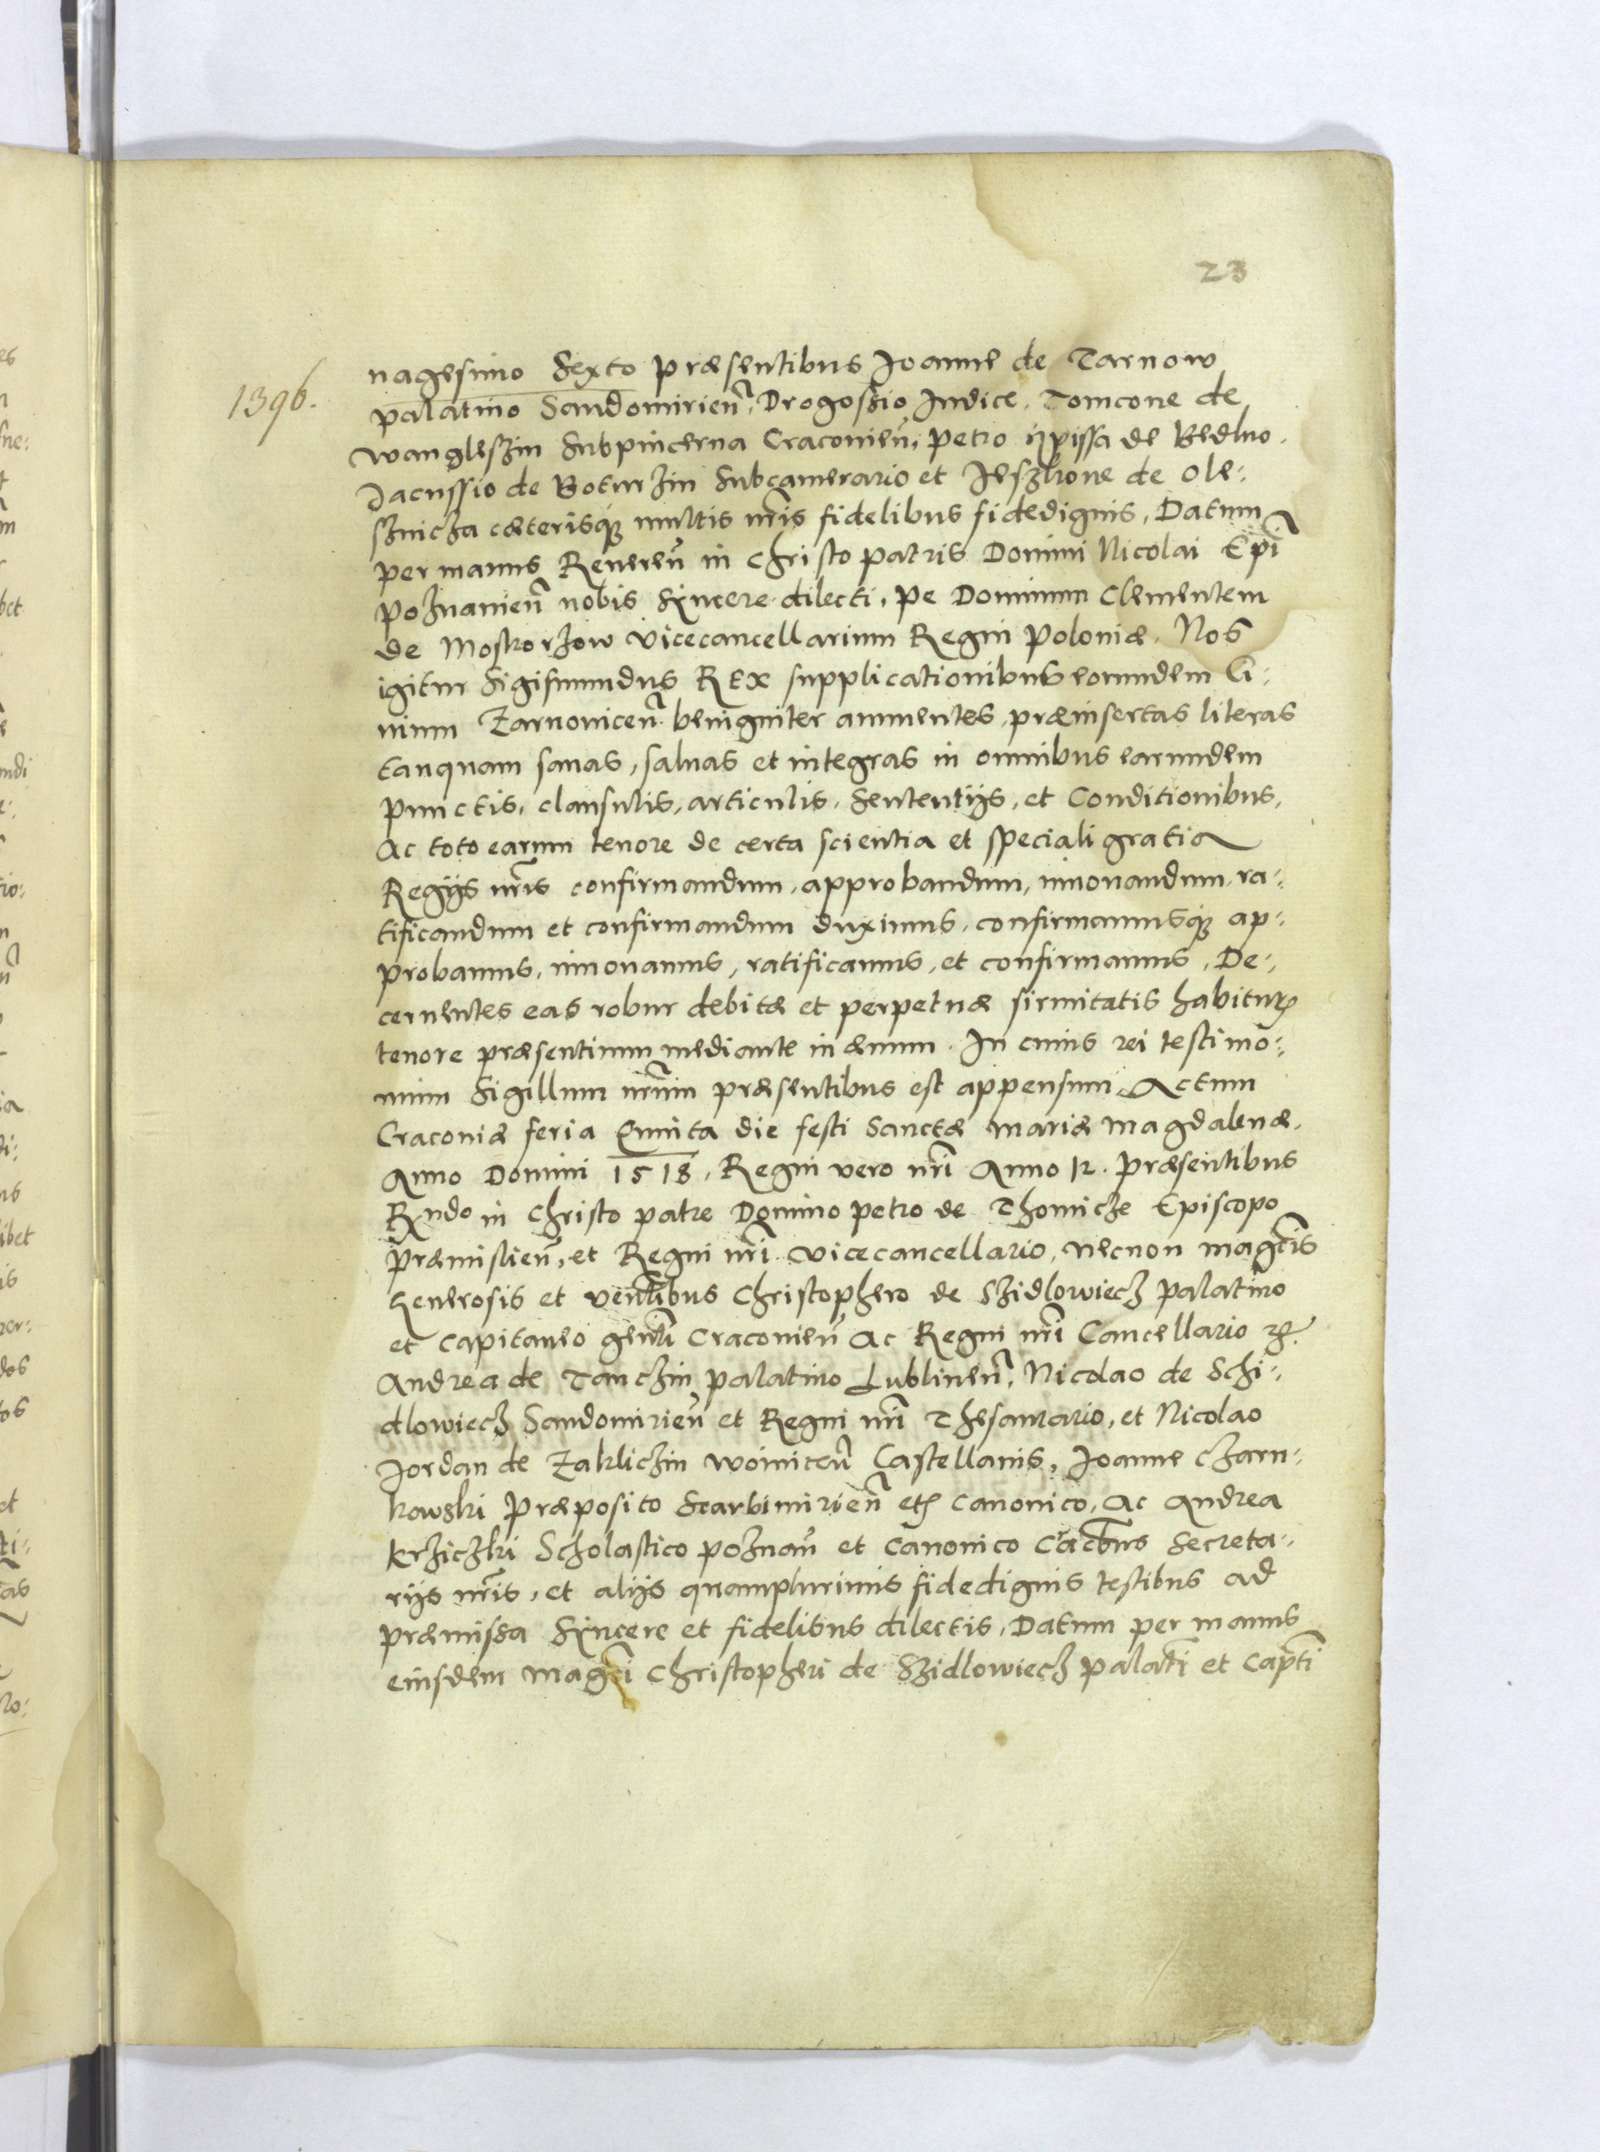 23
1396.
nagesimo Sexto præsentibus Joanne de Tarnow
palatino Sandomirien̄, Drogossio Judice, Tomcone de
Wangleszin Subpincerna Cracouien̄, Petro de Bedlno.
Jacussio de Boturzin Subcamerario et Jeszkone de Ole-
sznicza cæterisq́ꝫ multis nr̄is fidelibus fidedignis, Datum
per manus Reueren̄ in Christo patris Domini Nicolai Ep̄i
Poznanien̄ nobis syncere dilecti, Pe Dominum Clementem
de Moskorzow Vicecancellarium Regni Poloniæ. Nos
igitur Sigismundus REX supplicationibus eorundem Ci-
uium Zarnouicen̄ benigniter annuentes, præinsertas literas
tanquam sanas, saluas et integras in omnibus earundem
punctis, clausulis, articulis, sententijs, et Conditionibus,
Ac toto earum tenore de certa scientia et speciali gratia
Regijs nr̄is confirmandum, approbandum, innouandum, ra-
tificandum et confirmandum duximus, confirmamusq́ꝫ ap-
probamus, innouamus, ratificamus, et confirmamus, De-
cernentes eas robur debitæ et perpetuæ firmitatis habituꝝ
tenore præsentium mediante in æuum. In cuius rei testimo-
nium Sigillum nr̄um præsentibus est appensum. Actum
Cracouiæ feria Quinta die festi Sanctæ Mariæ Magdalenæ.
Anno Domini 1518, Regni vero nr̄i Anno 12. Præsentibus
Rx̄ndo in Christo patre Domino Petro de Thomicze Episcopo
Præmislien̄, et Regni nr̄i Vicecancellario, necnon mag̅cis
Generosis et ven̄libus Christophero de Szidlowiecz palatino
et Capitaneo gen̄li Cracouien̄ Ac Regni nr̄i Cancellario
Andrea de Tanczin palatino Lublinen̄, Nicolao de Schi-
dlowiecz Sandomirien̄ et Regni nr̄i Thesaurario, et Nicolao
Jordan de Zakliczin Woinicen̄ Castellanis, Joanne Czarn-
kowski Præposito Scarbimirien̄ Canonico, Ac Andrea
Krziczki Scholastico Poznan̄ et Canonico Secreta-
rijs nr̄is, et alijs quamplurimis fidedignis testibus ad
præmissa syncere et fidelibus dilectis, Datum per manus
eiusdem mag̅ci Christopheri de Szidlowiecz palatī et Cap̄ti